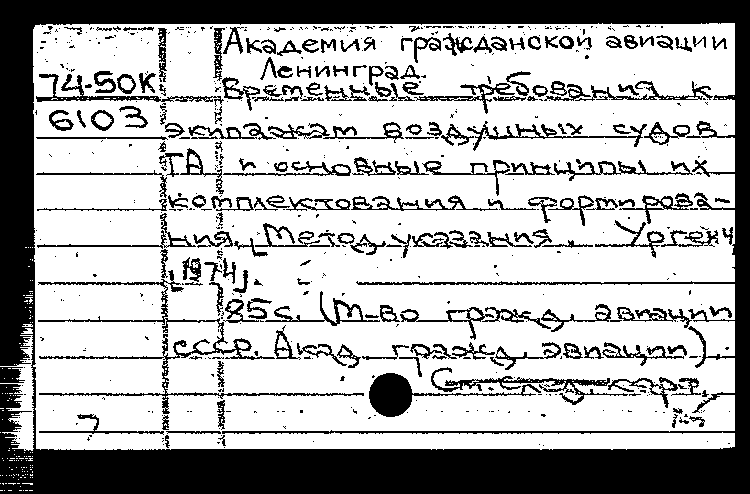 Академия гражданской авиации
Ленинград.
74-50К Временные требования к
6103 экипажам воздушных судов
ГА и основные принципы их
комплектования и формирова-
ния. [Метод. указания.
[1974].
85 с. (М-во гражд. авиации
СССР. Акад. гражд. авиации).
См. след. карт.
7